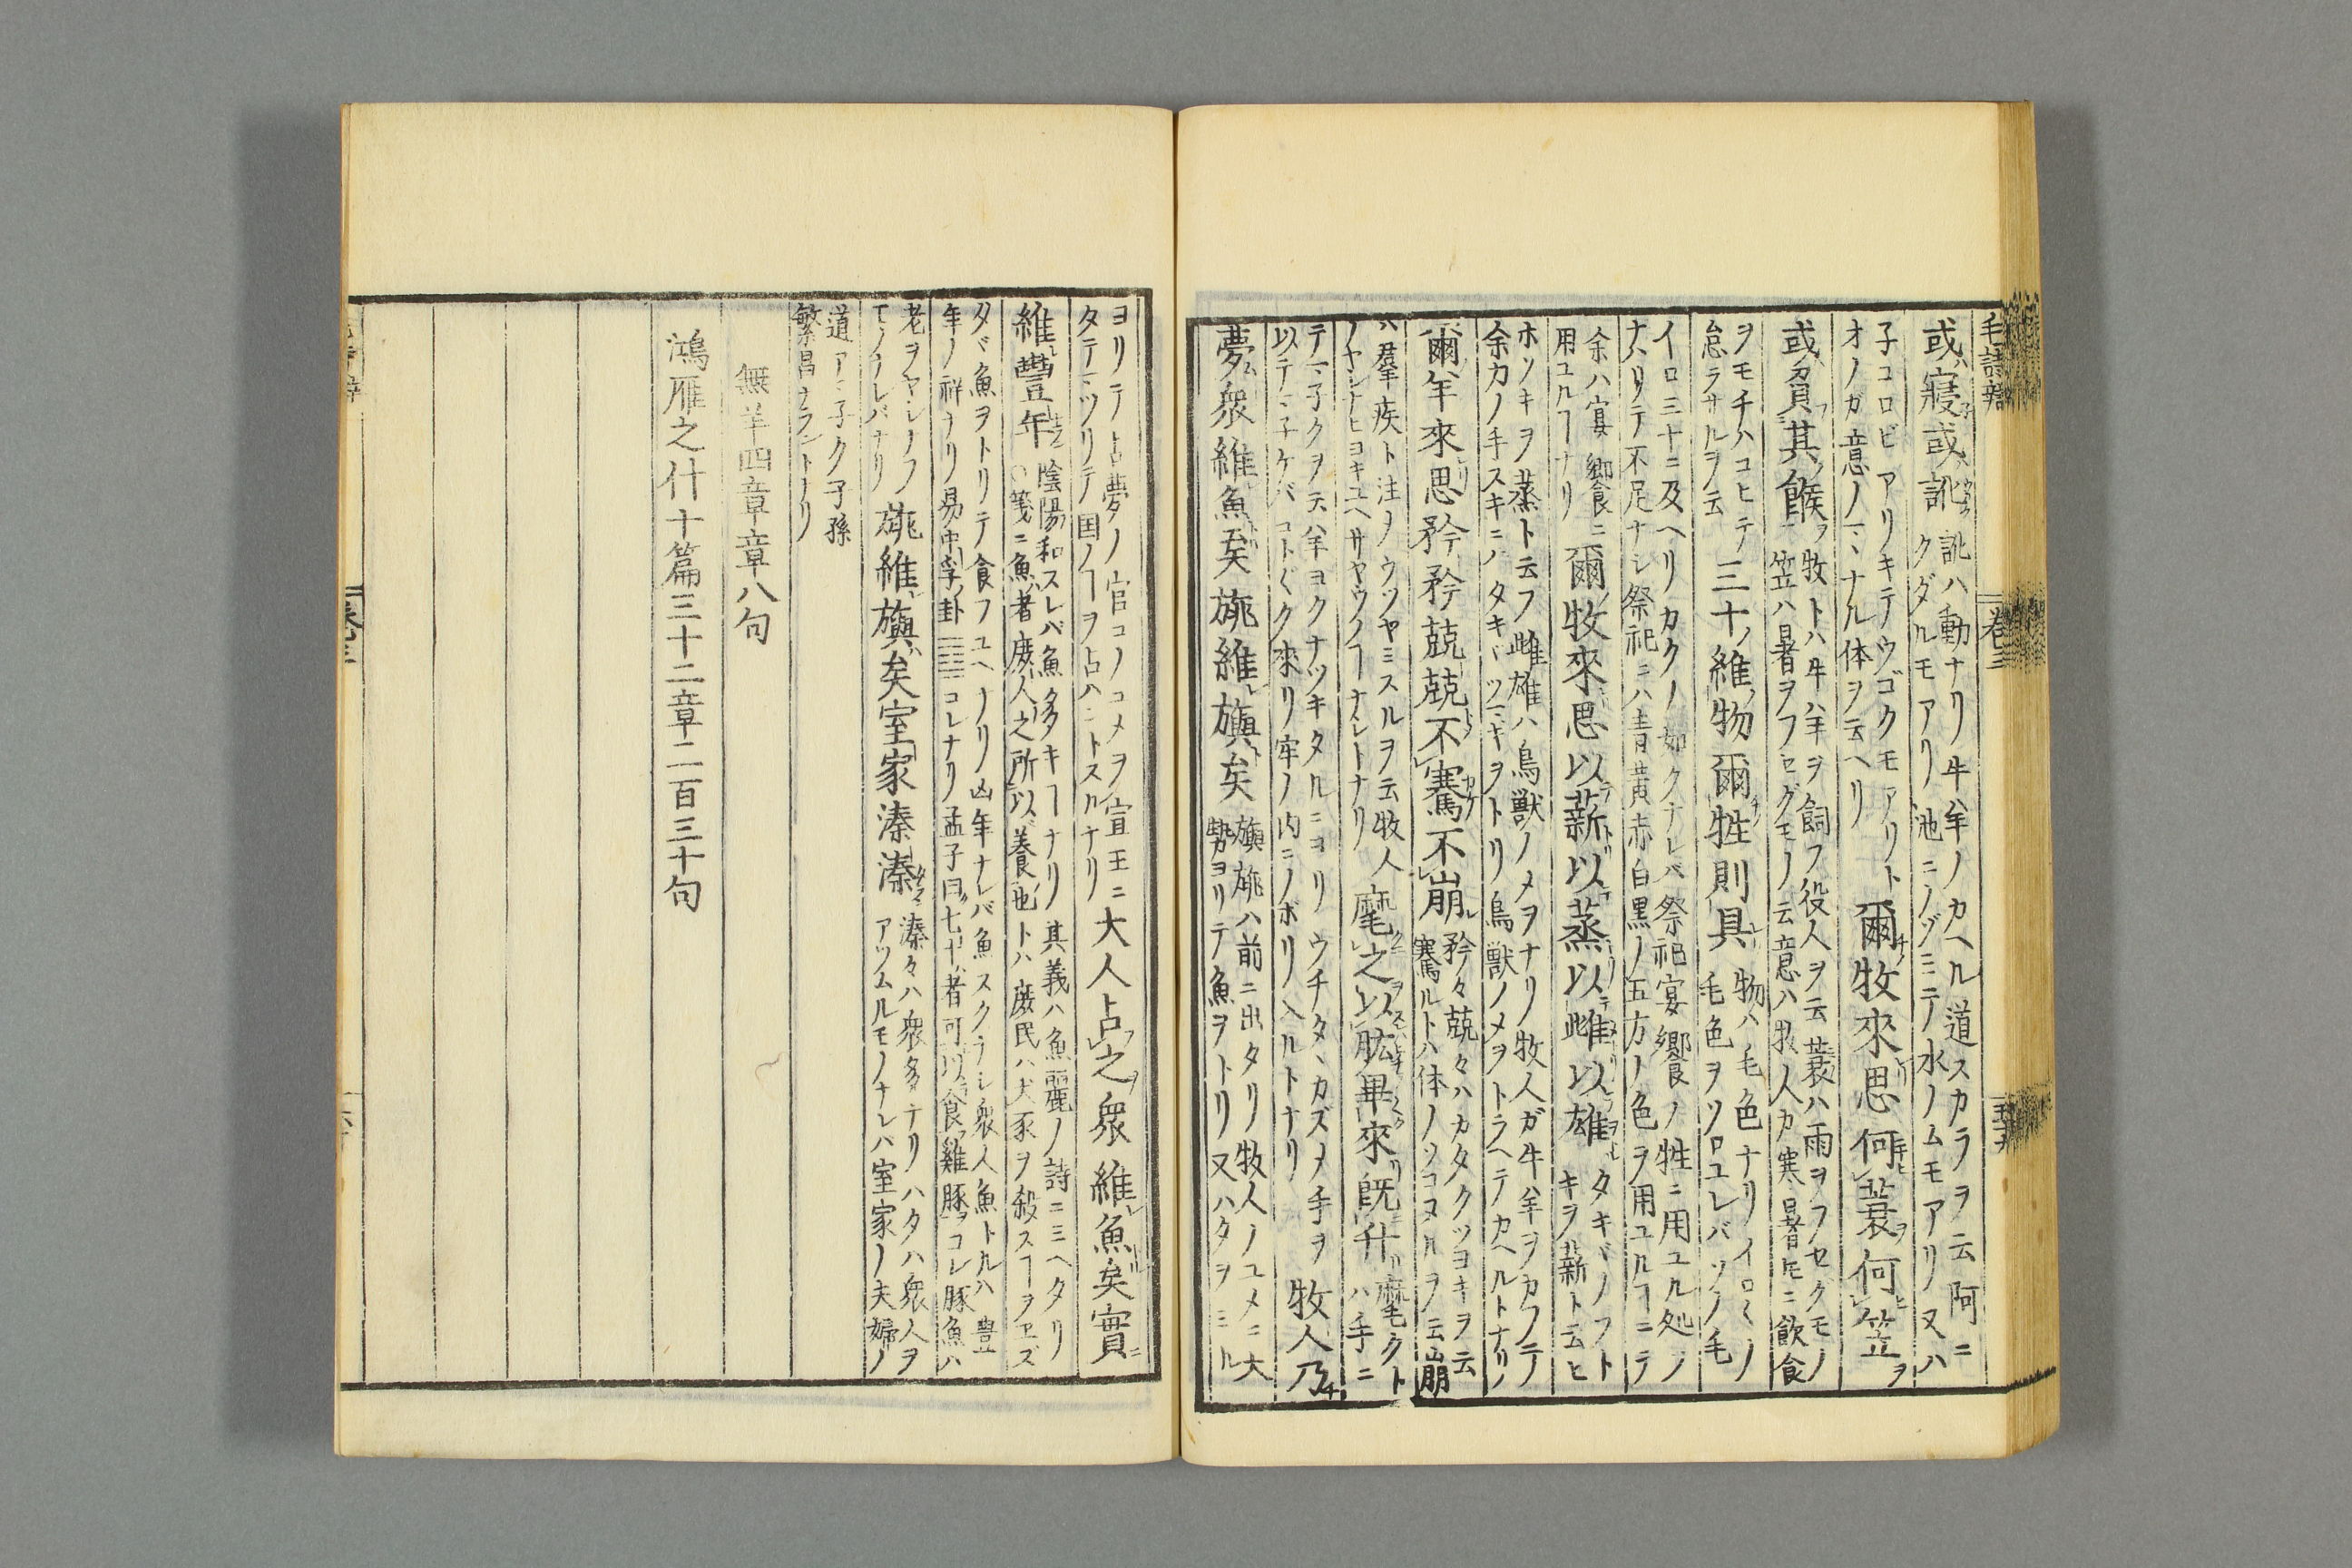 毛詩辨 卷三
或寢或訛
訛ハ動ナリ牛羊ノカヘル道スカラヲ云阿ニ
クダルモアリ池ニノゾミテ水ノムモアリ又ハ
子コロビアリキテウゴクモアリト
オノガ意ノマヽナル体ヲ云ヘリ
爾牧來思何蓑何笠
或負其餱
牧トハ牛羊ヲ飼フ役人ヲ云蓑ハ雨ヲフセクモノ
笠ハ暑ヲフセグモノ云意ハ牧人カ寒暑トモニ飲食
ヲモチハコヒテ
怠ラサルヲ云
三十維物爾牲則具
物ハ毛色ナリイロ〱ノ
毛色ヲソロユレバソノ毛
イロ三十ニ及ヘリカクノ如クナレバ祭祀宴饗ノ牲ニ用ユル処ノ
ナハリテ不足ナシ祭祀ニハ青黄赤白黒ノ五方ノ色ヲ用ユルヿニテ
余ハ宴饗ニ
用ユルヿナリ
爾牧來思以薪以蒸以雌以雄
タキヾノフト
キヲ薪ト云ヒ
ホソキヲ蒸ト云フ雌雄ハ鳥獣ノメヲナリ牧人ガ牛羊ヲカフテ
余カノ手スキニハタキヾツマキヲトリ鳥獣ノメヲトラヘテカヘルトナリ
爾羊來思矜矜兢兢不騫不崩
矜々兢々ハカタクツヨキヲ云
騫ルトハ体ノソコヌルヲ云崩
ハ羣疾ト注ノウツヤミスルヲ云牧人
ノヤシナヒヨキユヘサヤウノヿナシトナリ
麾之以肱畢來既升
麾クト
ハ手ニ
テマ子クヲ云ハ羊ヨクナツキタルニヨリウチタヽカズメ手ヲ
以テマ子ケバコト〲ク來リ牢ノ内ニノボリ入ルトナリ
牧人乃
夢衆維魚矣旐維旟矣
旟旐ハ前ニ出タリ牧人ノユメニ大
勢ヨリテ魚ヲトリ又ハタヲミル
ヨリテ占夢ノ官コノユメヲ宣王ニ
タテマツリテ国ノヿヲ占ハントスルナリ
大人占之衆維魚矣實
維豐年
陰陽和スレバ魚多キヿナリ其義ハ魚麗ノ詩ニミヘタリ
○箋ニ魚者庶人之所以養也トハ庶民ハ犬豕ヲ殺スヿヲヱズ
タヾ魚ヲトリテ食フユヘナリ凶年ナレバ魚スクナシ衆人魚トルハ豊
年ノ祥ナリ易中孚卦コレナリ孟子曰七十者可以食雞豚ヲコレ豚魚ハ
老ヲヤシナフ
モノナレバナリ
旐維旟矣室家溱溱
溱々ハ衆多ナリハタハ衆人ヲ
アツムルモノナレハ室家ノ夫婦ノ
道アマ子ク子孫
繁昌ナラントナリ
無羊四章章八句
鴻雁之什十篇三十二章二百三十句